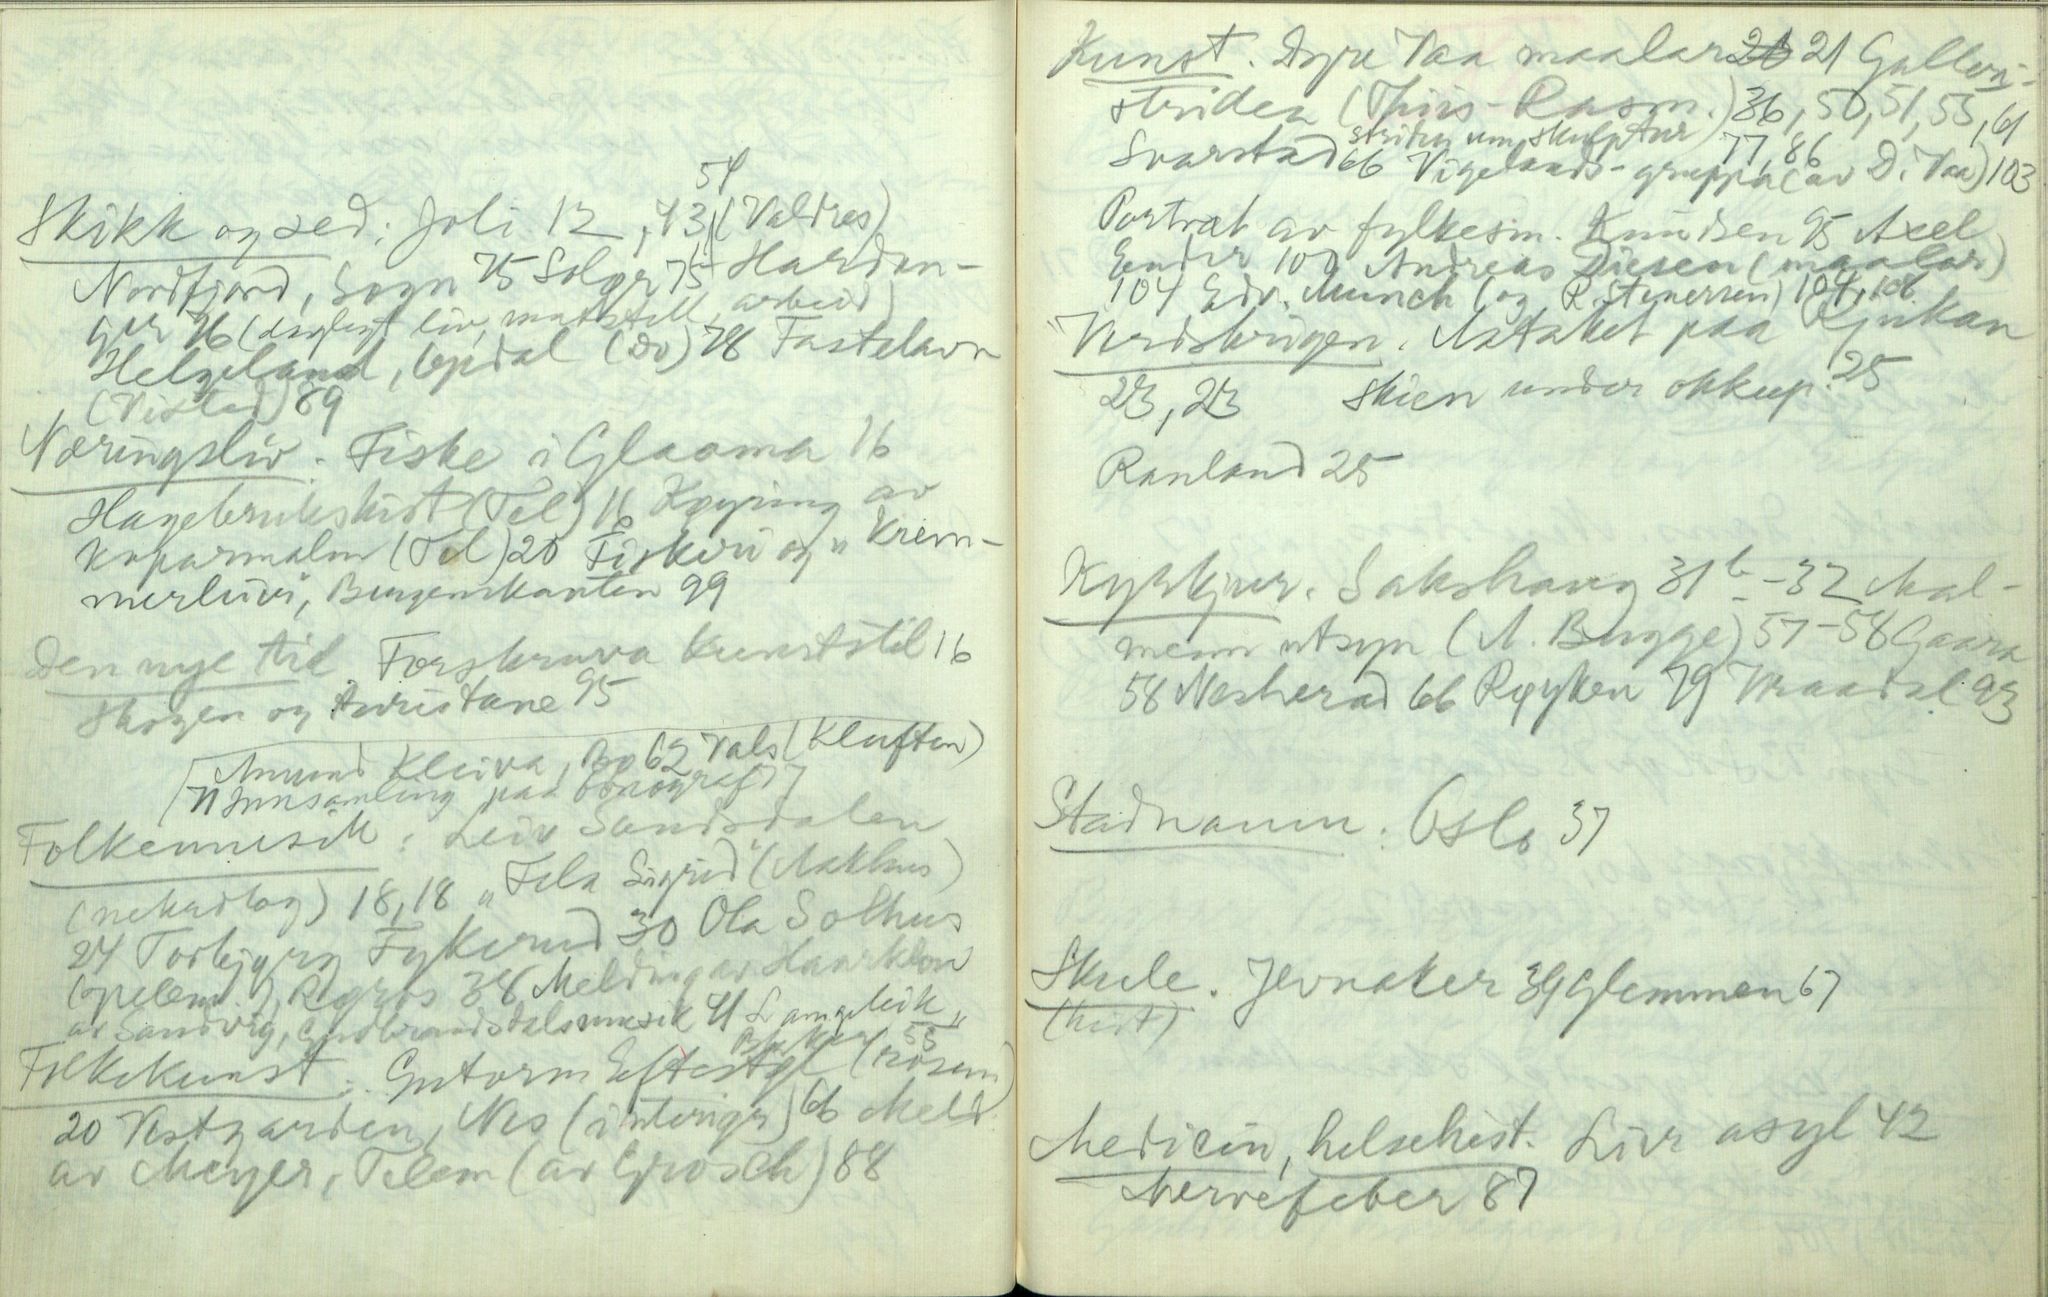 54
Skikk og sed: Joli 12, 43 (Valdres)
Nordfjord, Sogn 75 Solør 75 Hardan-
ger 76 (daglegt liv, matstell, arbeid)
Helgeland, Opdal (Do) 78 Fastelavn
(Vistad) 89
Næringsliv. Fiske i Glaama 16
Hagebrukshist (Tel) 16 Køyring av
koparmalm (Tel) 20 Fiskeri og "krem-
merluri", Bergenskanten 99
Den nye tid Forskruva kunststil 16
Skogen og turistane 95
Amund Kleiva, Bø 62 Vals (Kluften)
71 Innsamling paa fonograf 77
Folkemusik: Leiv Sandsdalen
(nekrolog) 18, 18 "Fela Sigrid" (Aakhus)
24 Torbjørn Fykerud 30 Ola Solhus
(spelem.), Røros 38 Melding av Haarklou
av Sandvig, Gudbrandsdalsmusik 41 Langeleik
55
Folkekunst: Gutorm Eftestøl (rosem)
20 Vestgarden, Nes (interiør) 66 Meld.
av Meyer, Telem (av Grosch) 88
Kunst. Dyre Vaa maalar 20 21 Galleri-
striden (Thiis-Rasm.) 36, 50, 51, 55, 61
striden um skulptur) 77, 86
Svarstad 66 Vigelands-gruppa (av D. Vaa) 103
Portræt av fylkesm. Knudsen 95 Axel
Ender 101 Andreas Diesen (maalar)
104 Edv. Munch (og R. Stenersen) 104, 106
Verdskrigen. Aataket paa Rjukan
23, 23 Skien under okkup. 25
Rauland 25
Kyrkjer. Sakshaug 31b-32 Aal-
menn utsyn (A. Bugge) 57-58 Gaara
58 Nesherad 66 Røyken 79 Vraadal 93
Stadnamn. Oslo 37
Skule. Jevnaker 39 Glemmen 67
(hist)
Medicin, helsehist. Lier asyl 42
Nervefeber 87